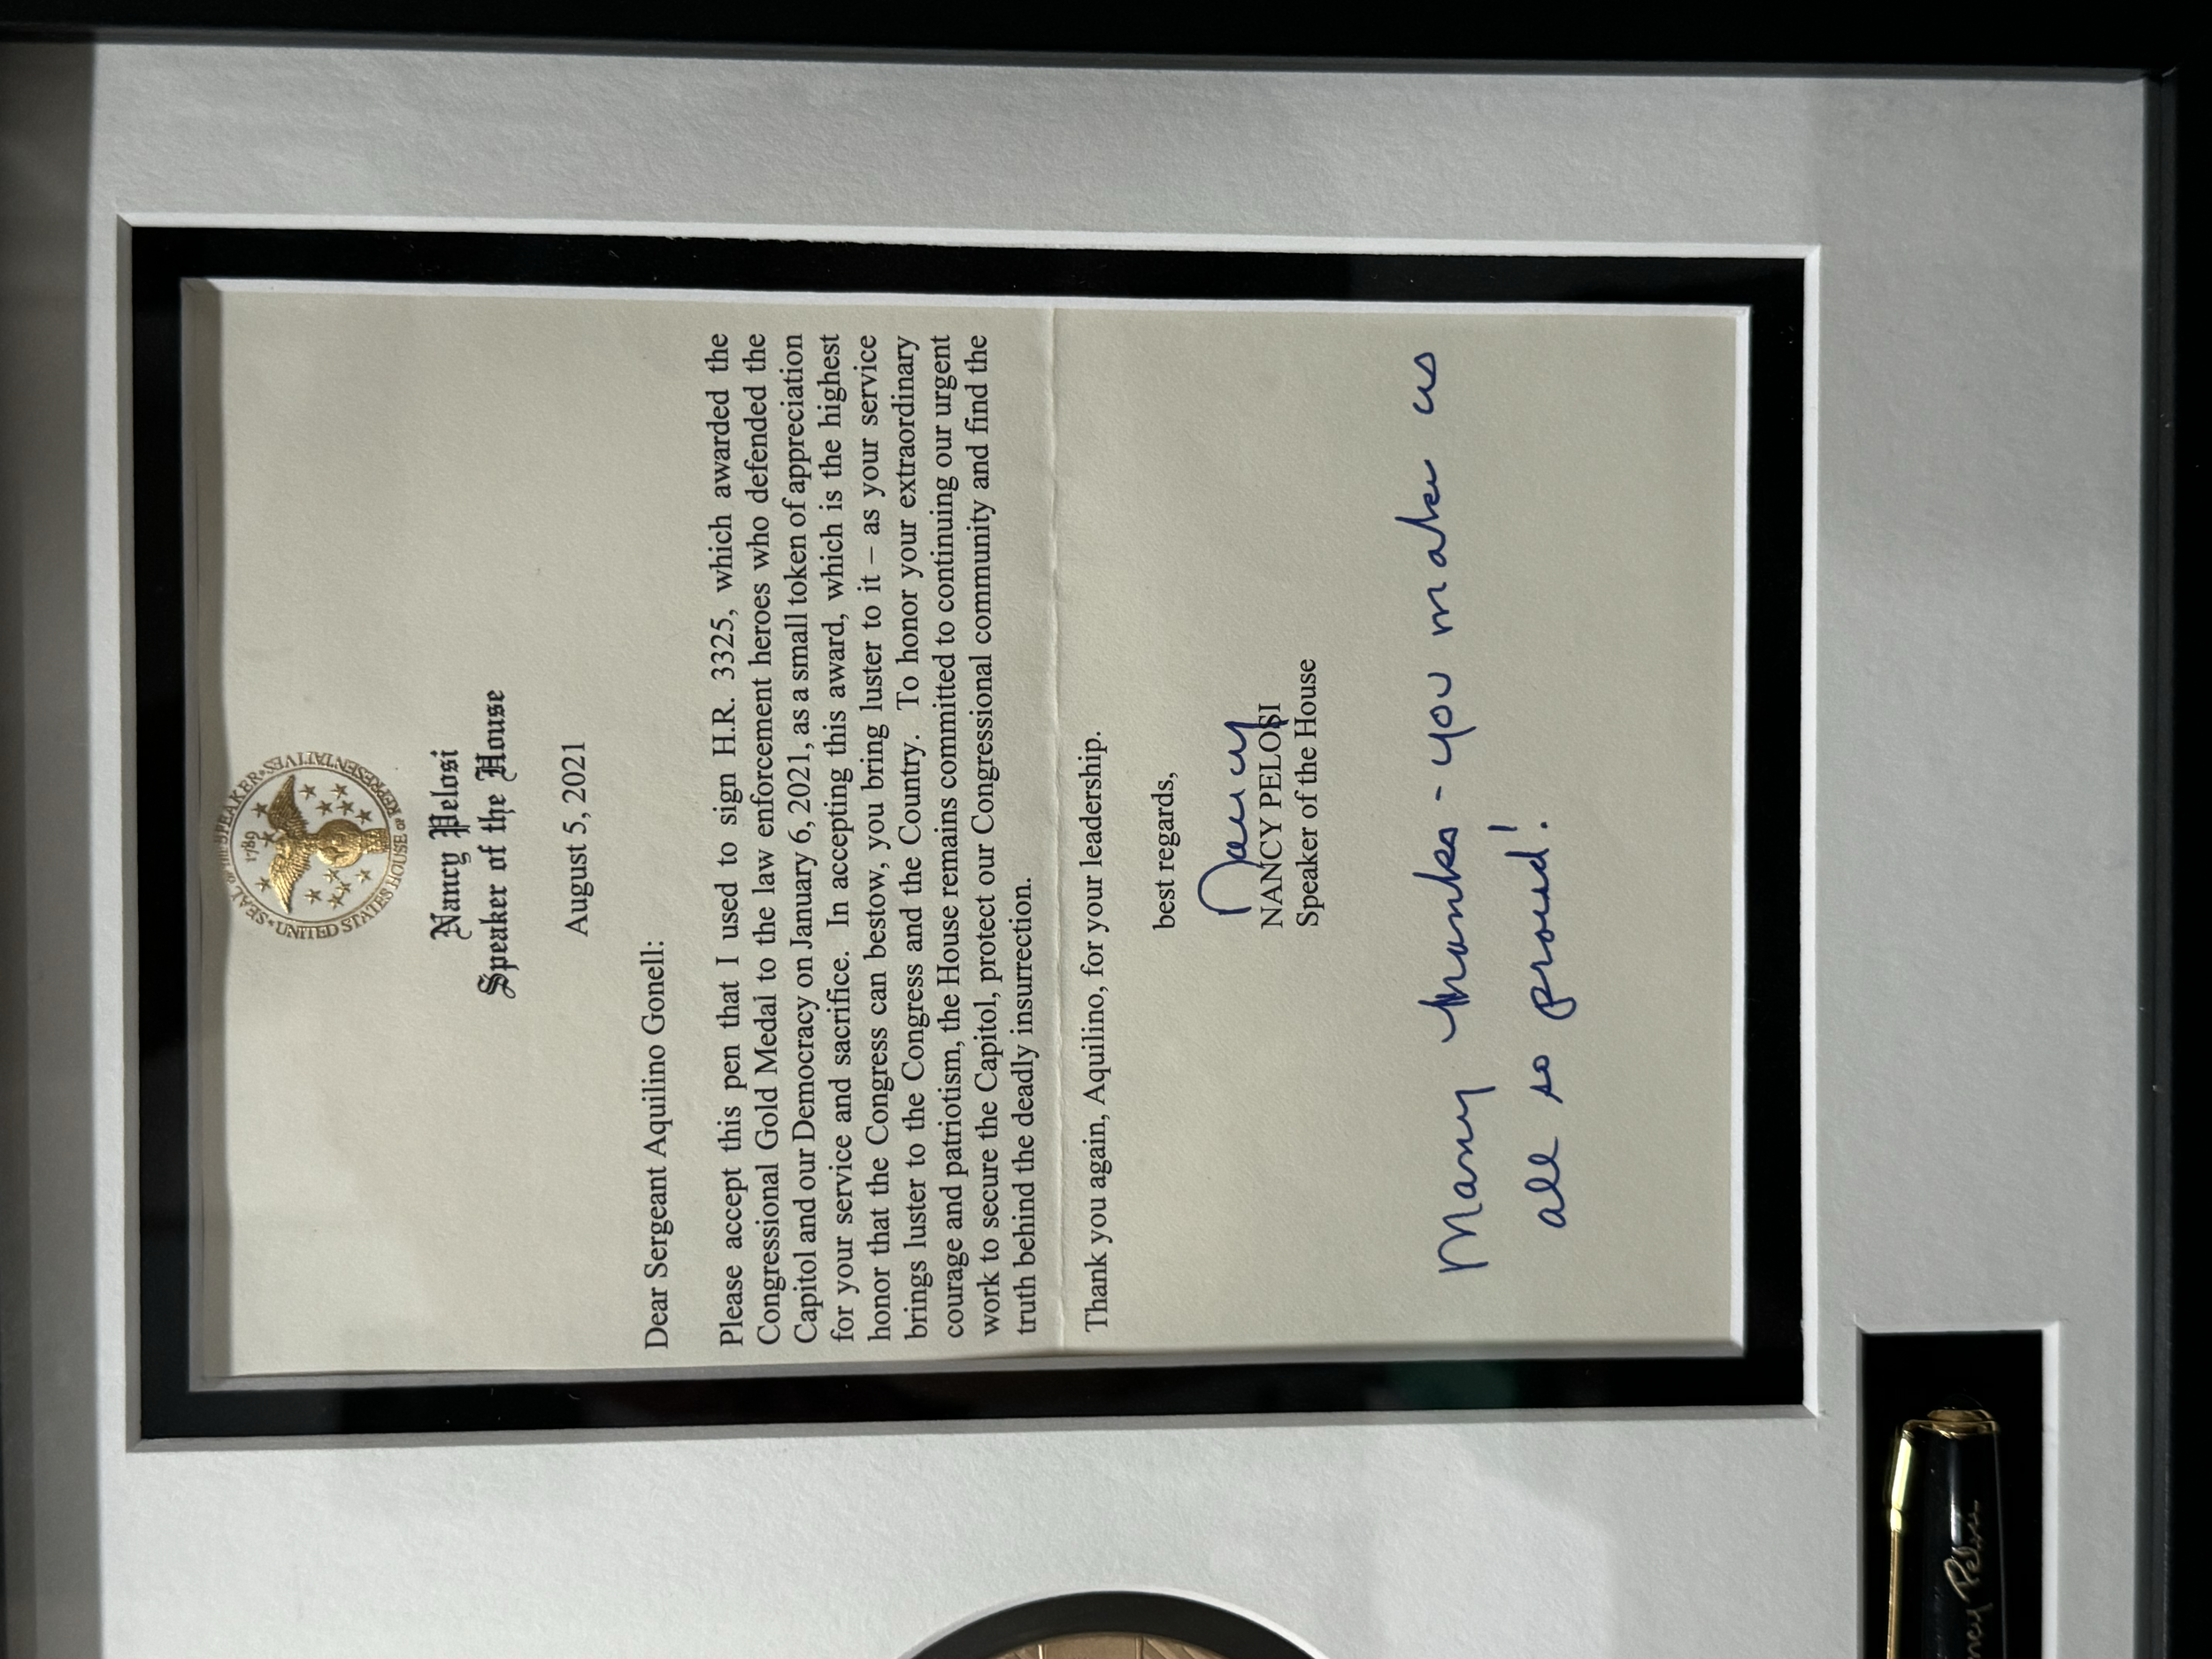 SEAL OF THE SPEAKER
UNITED STATES HOUSE OF REPRESENTATIVES
1789
Nancy Pelosi
Speaker of the House
August 5, 2021
Dear Sergeant Aquilino Gonell:
Please accept this pen that I used to sign H.R. 3325, which awarded the
Congressional Gold Medal to the law enforcement heroes who defended the
Capitol and our Democracy on January 6, 2021, as a small token of appreciation
for your service and sacrifice. In accepting this award, which is the highest
honor that the Congress can bestow, you bring luster to it – as your service
brings luster to the Congress and the Country. To honor your extraordinary
courage and patriotism, the House remains committed to continuing our urgent
work to secure the Capitol, protect our Congressional community and find the
truth behind the deadly insurrection.
Thank you again, Aquilino, for your leadership.
best regards,
Nancy
NANCY PELOSI
Speaker of the House
Many thanks - you make us
all so proud!
ncy Pelosi